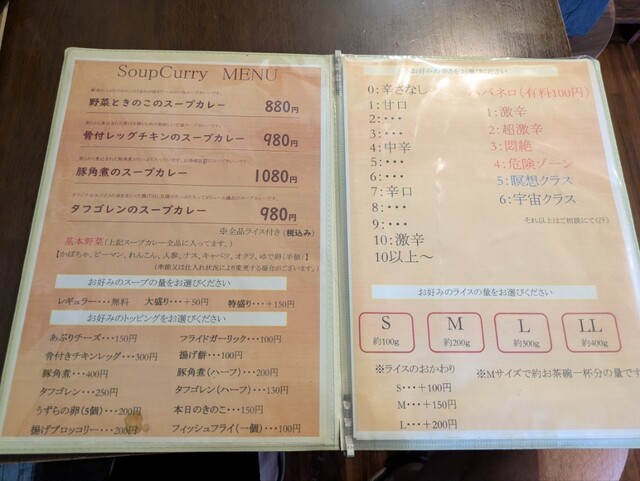 SoupCurry MENU
野菜ときのこのスープカレー 880円
骨付レッグチキンのスープカレー 980円
豚角煮のスープカレー 1080円
タフゴレンのスープカレー 980円
※全品ライス付き(税込み)
基本野菜(上記スープカレー全品に入ってます。)
【かぼちゃ、ピーマン、れんこん、人参、ナス、キャベツ、オクラ、ゆで卵(半個)】
(季節又は仕入れ状況により変更する場合がございます。)
お好みのスープの量をお選びください
レギュラー・・・無料 大盛り・・・+50円 特盛り・・・+150円
お好みのトッピングをお選びください
あぶりチーズ・・・150円 フライドガーリック・・・100円
骨付きチキンレッグ・・・300円 揚げ餅・・・100円
豚角煮・・・400円 豚角煮(ハーフ)・・・200円
タフゴレン・・・250円 タフゴレン(ハーフ)・・・130円
うずらの卵(5個)・・・200円 本日のきのこ・・・150円
揚げブロッコリー・・・200円 フィッシュフライ(一個)・・・100円
お好みの辛さをお選びください
0:辛さなし
1:甘口
2:・・・
3:・・・
4:中辛
5:・・・
6:・・・
7:辛口
8:・・・
9:・・・
10:激辛
10以上〜
バネロ(有料100円)
1:激辛
2:超激辛
3:悶絶
4:危険ゾーン
5:瞑想クラス
6:宇宙クラス
それ以上はご相談にて(汗)
お好みのライスの量をお選びください
S 約100g
M 約200g
L 約300g
LL 約400g
※ライスのおかわり
S・・・+100円
M・・・+150円
L・・・+200円
※Mサイズで約お茶碗一杯分の量です